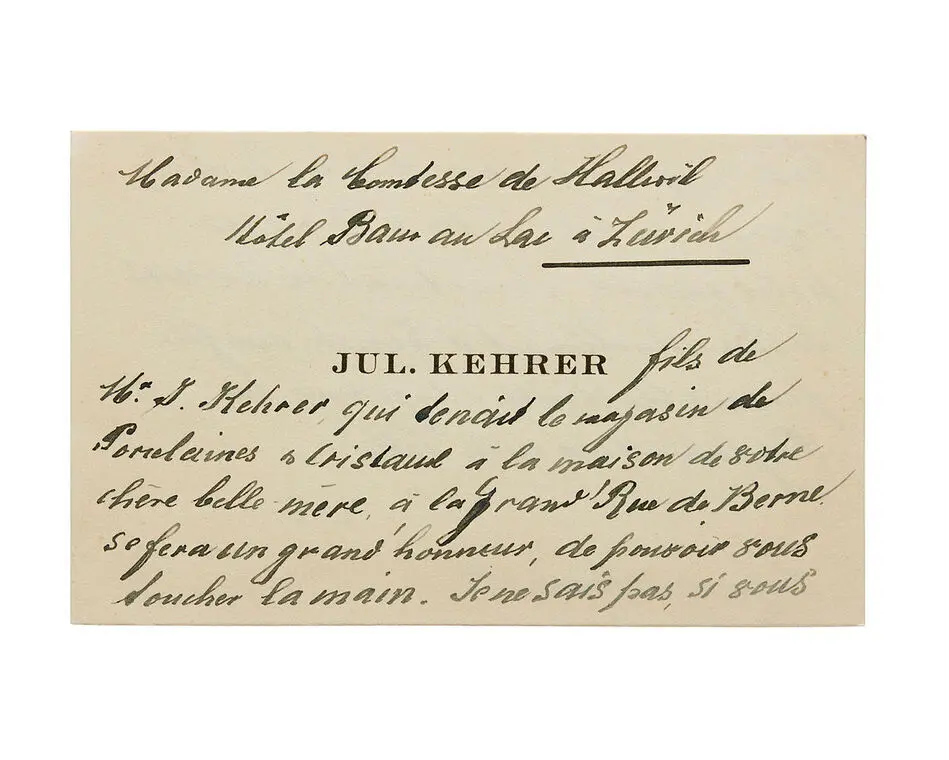 Madame la Comtesse de Hallwil
Hôtel Baur au Lac à Zürich
JUL. KEHRER fils de
Mr. J. Kehrer, qui tenait le magasin de
Porcelaines & Cristaux à la maison de votre
chère belle-mère, à la Grand' Rue de Berne.
se fera un grand honneur, de pouvoir vous
toucher la main. Je ne sais pas, si vous